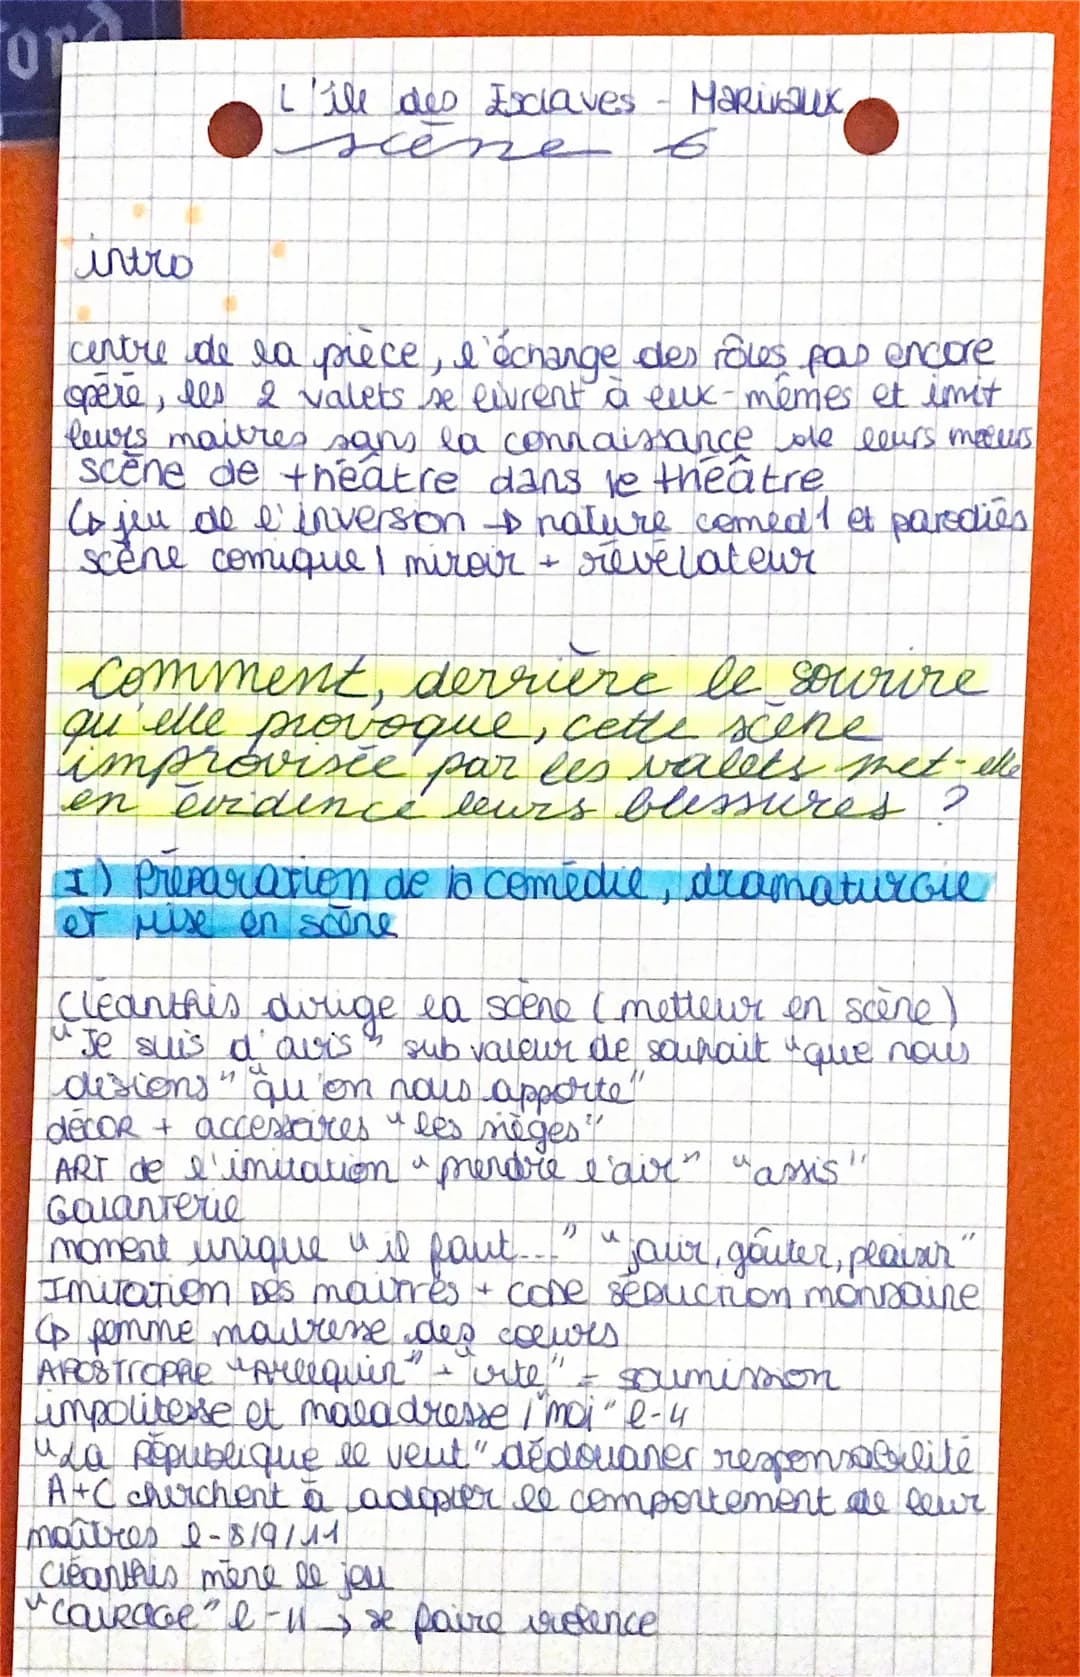 ord
L'île des Esclaves - Marivaux
scène 6
intro
centre de la pièce, l'échange des rôles pas encore
opéré, les 2 valets se livrent à eux-mêmes et imit
leurs maitres sans la connaissance de leurs mœurs
scène de théâtre dans le théâtre
↳ jeu de l'inversion → nature comed1 et parodiés
scène comique / miroir + révélateur
Comment, derrière le sourire
qu'elle provoque, cette scène
improvisée par les valets met-elle
en évidence leurs blessures ?
I) Préparation de la comédie, dramaturgie
et mise en scène
Cléanthis dirige la scène (metteur en scène)
"Je suis d'avis" sub valeur de souhait "que nous
disions" "qu'on nous apporte"
décor + accessoires "les sièges"
ART de l'imitation "prendre l'air" "assis"
Galanterie
moment unique "il faut..." "jouir, goûter, plaisir"
Imitation des maitres + code séduction mondaine
↳ femme maitresse des cœurs
APOSTROPHE "Arlequin" + "vite" = soumission
impolitesse et maladresse / "moi" l-4
"La République le veut" dédouaner responsabilité
A+C cherchent à adopter le comportement de leur
maîtres l-8/9/11
Cléanthis mène le jeu
"courage" l-11 → se faire violence